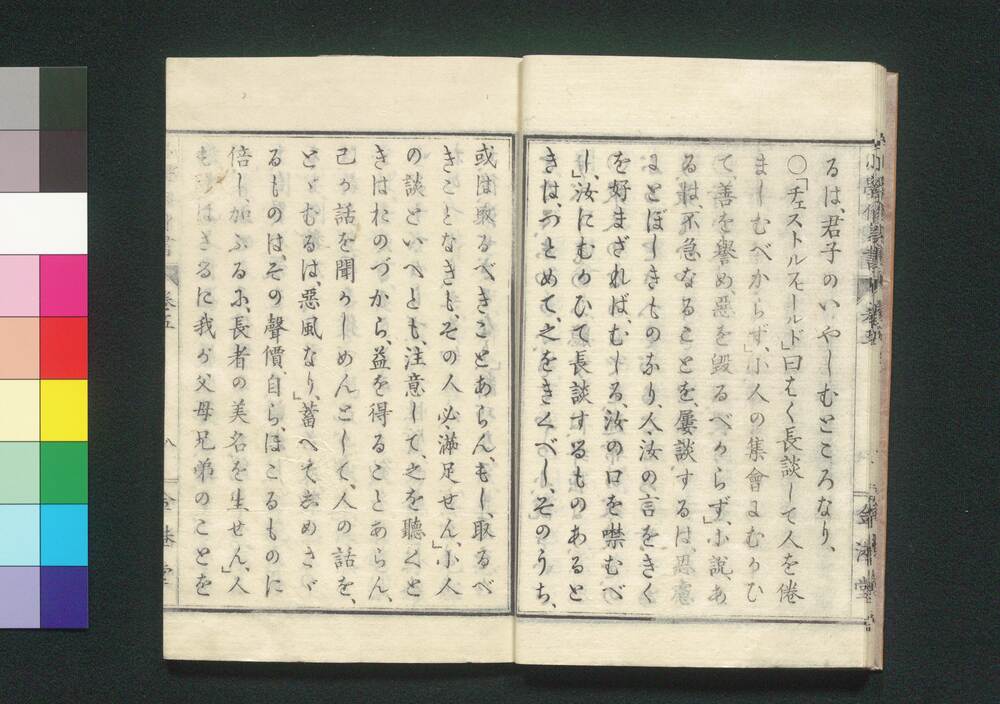 るは、君子のいやしむところなり、
○「チェストルヒールド」曰はく長談して人を倦
ましむべからず、」小人の集會にむかひ
て、善を譽め惡を毀るべからず、」小說、あ
るは、不急なることを、屢談するは、思慮
にとぼしきものなり、人、汝の言をきく
を好まざれば、むしろ汝の口を噤むべ
し、」汝にむかひて長談するものあると
きは、つとめて、之をきくべし、そのうち、
或は取るべきことあらん、もし、取るべ
きことなきも、その人必滿足せん、」小人
の談といへども、注意して、之を聽くと
きはおのづから、益を得ることあらん、
己が話を聞かしめんとして、人の話を、
とゞむるは、惡風なり、」蓄へて出めさゞ
るものは、その聲價、自ら、ほこるものに
倍し、加ふるに、長者の美名を生せん、」人
もほさるに我が父母兄弟のことを
卷五
八